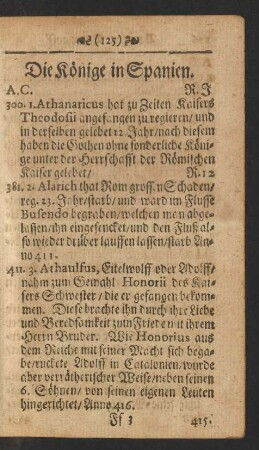 (125)
Die Könige in Spanien.
A.C. R.J
300. 1. Athanaricus hat zu Zeiten Kaisers
Theodosii angefangen zu regieren/ und
in derselben gelebet 12 Jahr/nach diesem
haben die Gothen ohne sonderliche Köni-
ge unter der Herrschafft der Römischen
Kaiser gelebet/ R.12
381. 2. Alarich that Rom grossen Schaden/
reg. 23. Jahr/starb/ und ward im Flusse
Busendo begraben/welchen man abge-
lassen/ihn eingesencket/und den Fluß al-
so wieder drüber lauffen lassen/starb An-
no 411.
411. 3. Athaulfus, Eitelwolff oder Adolff/
nahm zum Gemahl Honorii des Kai-
sers Schwester/ die er gefangen bekom-
men. Diese brachte ihn durch ihre Liebe
und Beredsamkeit zum Frieden mit ihrem
Herrn Bruder. Wie Honorius aus
dem Reiche mit seiner Macht sich bega-
be/rückete Adolff in Catalonien/wurde
aber verrätherischer Weise/neben seinen
6. Söhnen/ von seinen eigenen Leuten
hingerichtet/ Anno 416.
Ff 3 415.